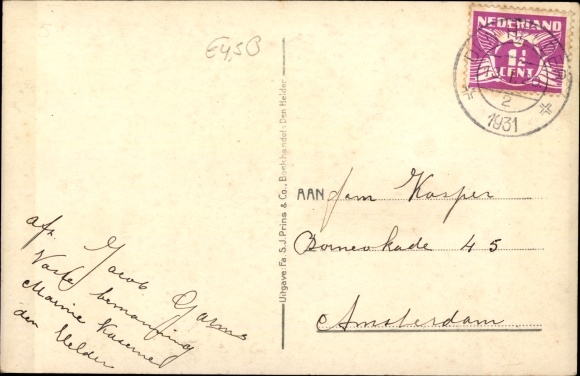 E4,50
NEDERLAND
1½
CENT
2
1931
Uitgave: Fa. S.J. Prins & Co., Boekhandel: Den Helder.
AAN
Jam Kasper
Borneokade 45
Amsterdam
afz. Jacob
Vaste bemanning
Marine Kazerne
den Helder